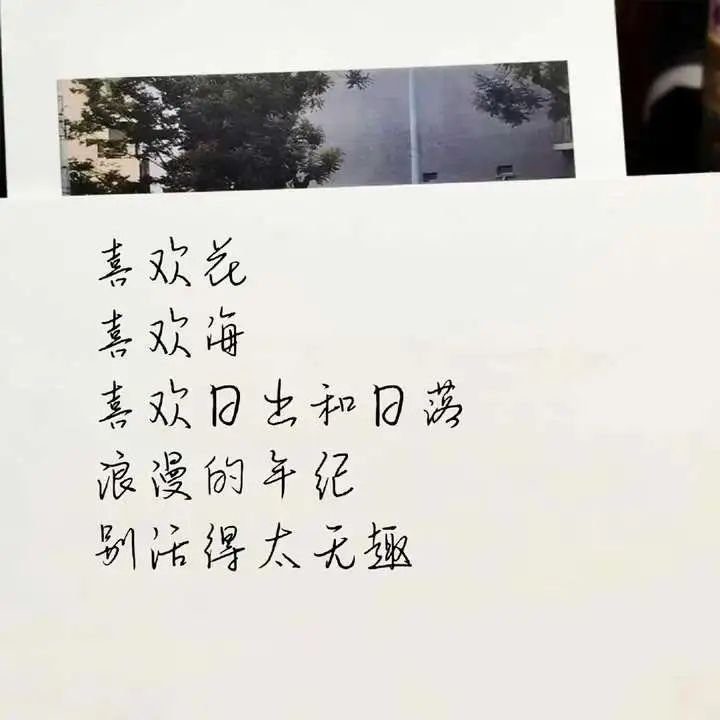 喜欢花
喜欢海
喜欢日出和日落
浪漫的年纪
别活得太无趣